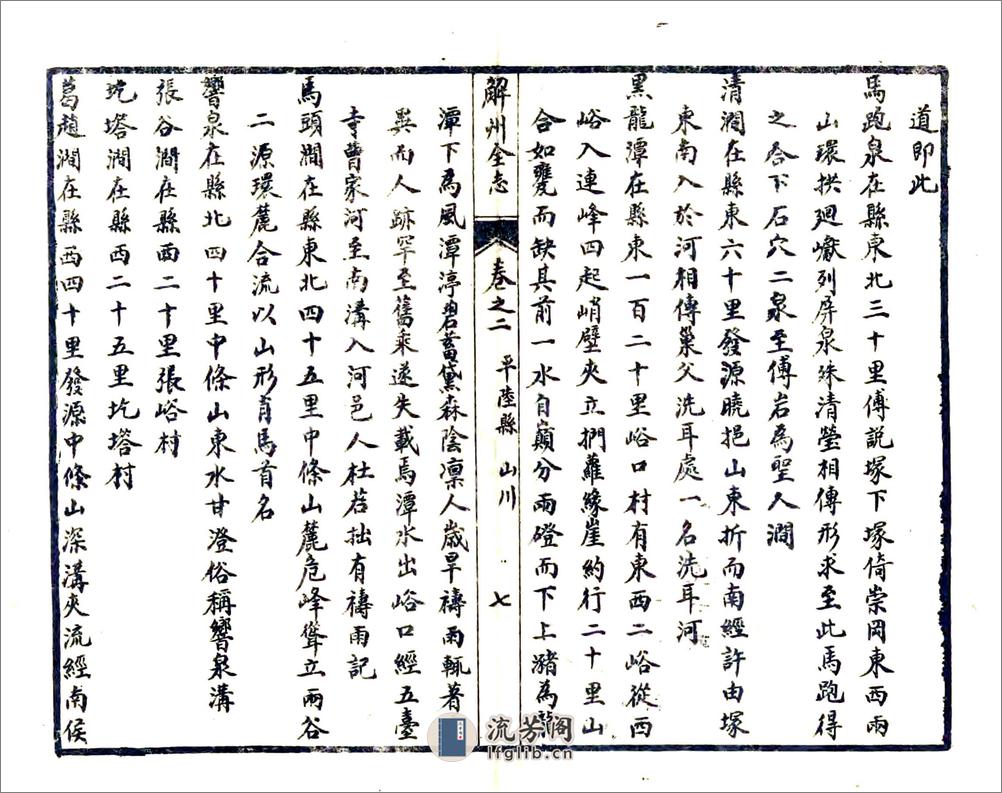 道即此
馬跑泉在縣東北三十里傅說塚下塚倚崇岡東西兩
山環拱廻巘列屏泉殊清瑩相傳形求至此馬跑得
之谷下石穴二泉至傅岩為聖人澗
清澗在縣東六十里發源曉挹山東折而南經許由塚
東南入於河相傳巢父洗耳處一名洗耳河
黑龍潭在縣東一百二十里峪口村有東西二峪從西
峪入連峰四起峭壁夾立捫蘿緣崖約行二十里山
合如甕而缺其前一水自巔分兩磴而下上瀦為龍
解州全志
卷之二
平陸縣
山川
七
潭下為風潭渟碧蓄黛森陰凜人歲旱禱雨輒著
異而人跡罕至舊乘遂失載焉潭水出峪口經五臺
寺曹家河至南溝入河邑人杜若拙有禱雨記
馬頭澗在縣東北四十五里中條山麓危峰聳立兩谷
二源環麓合流以山形肖馬首名
響泉在縣北四十里中條山東水甘澄俗稱響泉溝
張谷澗在縣西二十里張峪村
圪塔澗在縣西二十五里圪塔村
葛趙澗在縣西四十里發源中條山深溝夾流經南侯
流芳阁
lfglib.cn